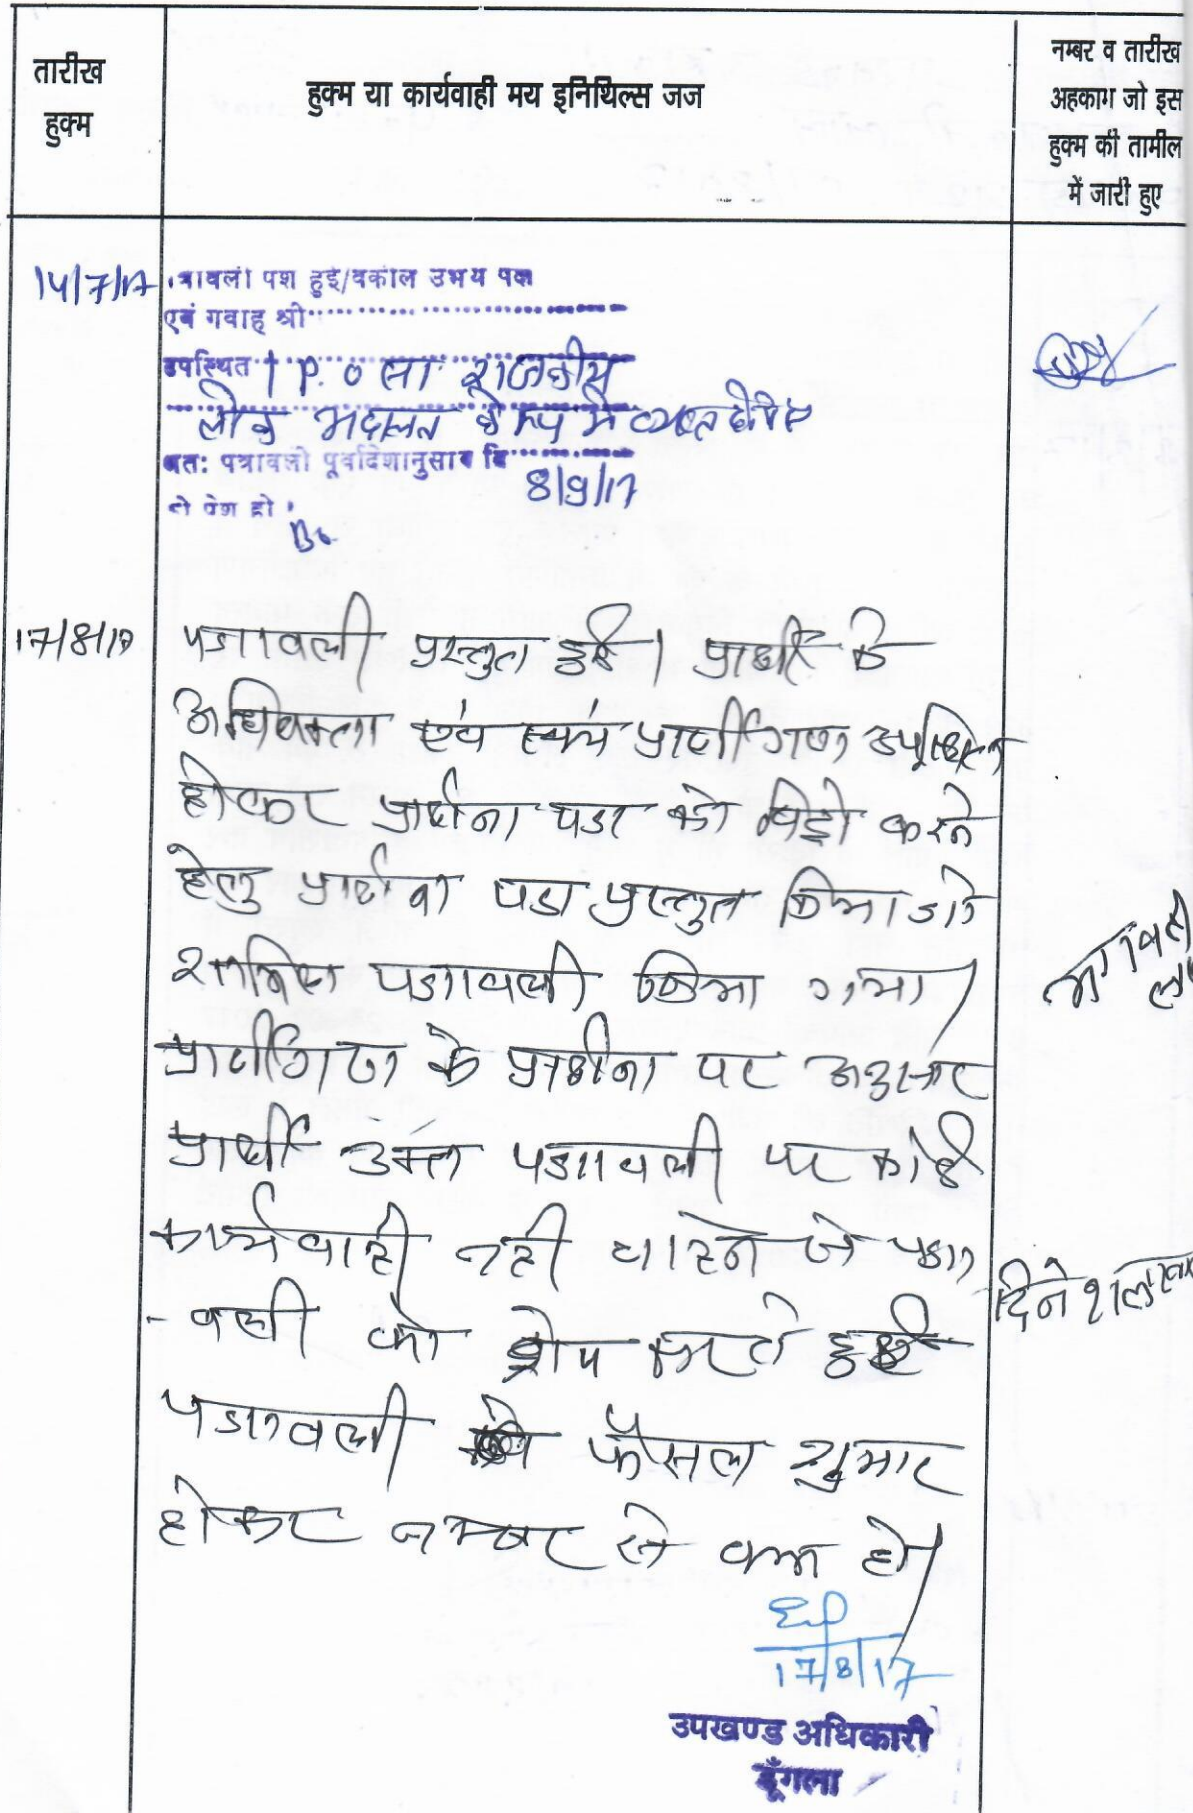 तारीख
हुक्म
हुक्म या कार्यवाही मय इनिथिल्स जज
नम्बर व तारीख
अहकाम जो इस
हुक्म की तामील
में जारी हुए
14/7/17
त्रावली पेश हुई/वकील उभय पक्ष
एवं गवाह श्री
उपस्थित । P.O सा राजकीय
लोक अदालत केम्प में व्यस्त होने से
अत: पत्रावली पूर्वादेशानुसार दि
8/9/17
को पेश हो ।
17/8/17
पत्रावली प्रस्तुत हुई। प्रार्थी के
अधिवक्ता एवं स्वयं प्रार्थीगण उपस्थित
होकर प्रार्थना पत्र को विड्रो करने
हेतु प्रार्थना पत्र प्रस्तुत किया जो
शामिल पत्रावली किया गया।
प्रार्थीगण के प्रार्थना पत्र अनुसार
प्रार्थी उक्त पत्रावली पर कोई
कार्यवाही नहीं चाहने से पत्रा
-वली को ड्रोप करते हुए
पत्रावली फैसल शुमार
होकर नम्बर से कम हो।
दिनेश
17/8/17
उपखण्ड अधिकारी
डूँगला